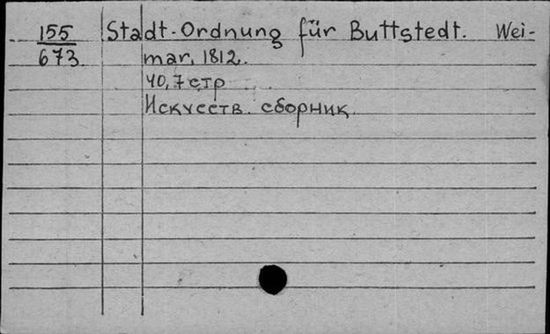 155 Stadt-Ordnung für Buttstedt. Wei-
673 mar, 1812.
40, 7 стр
Искусств. сборник.